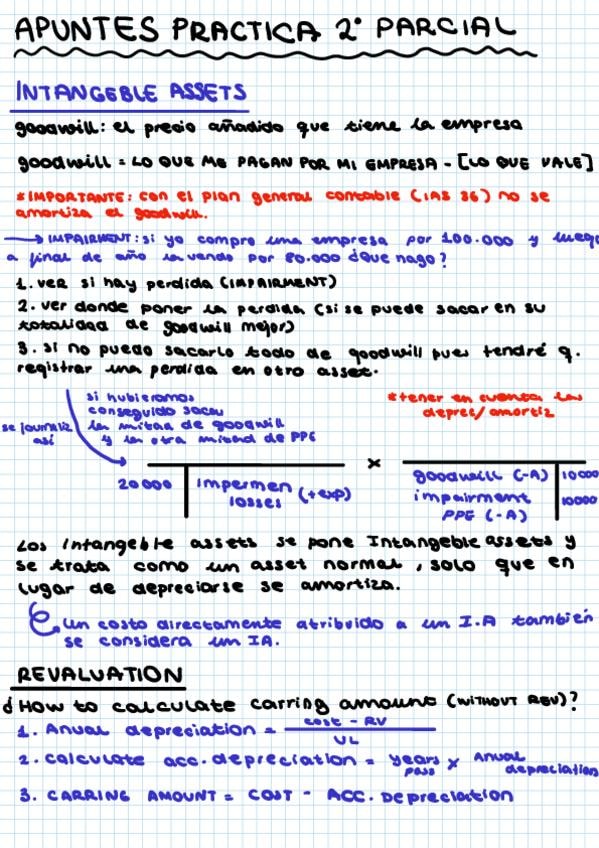 APUNTES PRACTICA 2º PARCIAL
INTANGEBLE ASSETS
goodwill: el precio añadido que tiene la empresa
goodwill = LO QUE ME PAGAN POR MI EMPRESA - [LO QUE VALE]
*IMPORTANTE: con el plan general contable (IAS 36) no se
amortiza el goodwill.
→ IMPAIRMENT: si yo compro una empresa por 100.000 y luego
a final de año la vendo por 80.000 ¿que hago?
1. ver si hay perdida (IMPAIRMENT)
2. ver donde poner la perdida (si se puede sacar en su
totalidad de goodwill mejor)
3. si no puedo sacarlo todo de goodwill pues tendré q.
registrar una perdida en otro asset.
si hubieramos
conseguido sacar
la mitad de goodwill
y la otra mitad de PPE
*tener en cuenta las
deprec/amortiz
se journaliz
así
20000 impermen (+exp)
losses
x
goodwill (-A) 10000
impairment 10000
PPE (-A)
Los intangeble assets se pone Intangeble assets y
se trata como un asset normal, solo que en
lugar de depreciarse se amortiza.
un costo directamente atribuido a un I.A también
se considera un IA.
REVALUATION
¿How to calculate carring amount (WITHOUT REV)?
1. Anual depreciation = cost - RV
UL
2. calculate acc. depreciation = years pass x Anual depreciation
3. CARRING AMOUNT = COST - ACC. Depreciation